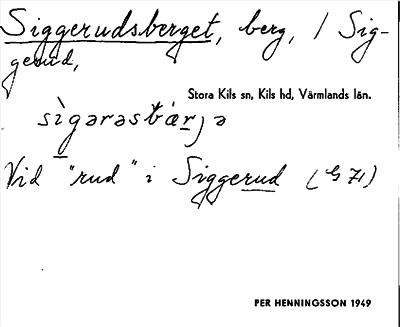 Siggerudsberget, berg, / Sig-
gerud,
Stora Kils sn, Kils hd, Värmlands län.
sìgərəsbàrjə
Vid "rud" i Siggerud (G 71)
PER HENNINGSSON 1949